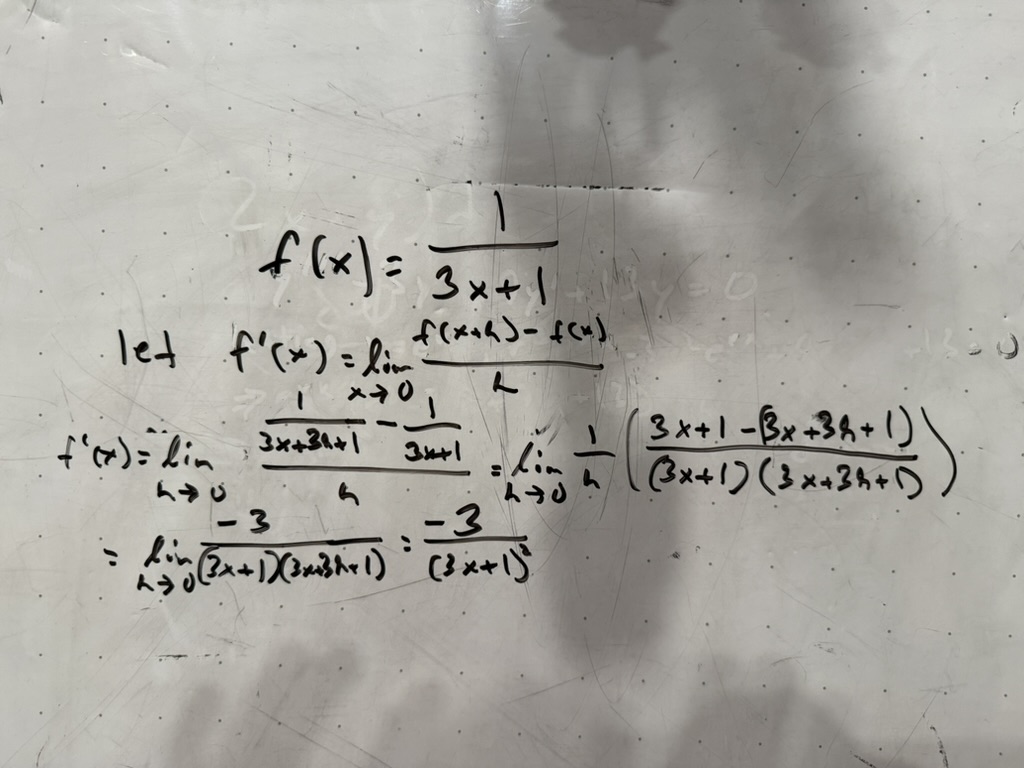 f(x) = 1/(3x+1)
let f'(x) = lim x→0 (f(x+h) - f(x))/h
f'(x) = lim h→0 (1/(3x+3h+1) - 1/(3x+1))/h = lim h→0 1/h ((3x+1 - (3x+3h+1))/((3x+1)(3x+3h+1)))
= lim h→0 -3/((3x+1)(3x+3h+1)) = -3/(3x+1)²